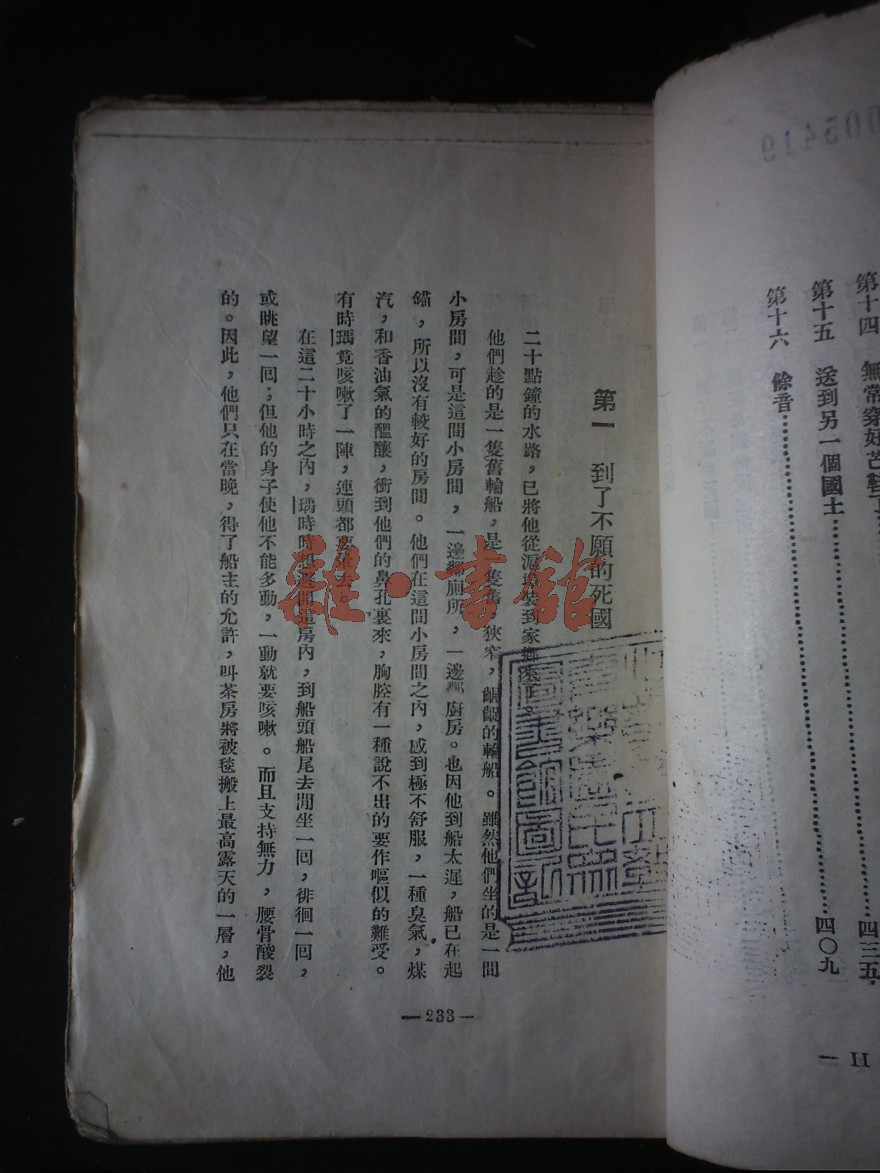 005419
第十四　無常穿好芒鞋了…………四三五
第十五　送到另一個國土…………四〇九
第十六　餘音…………
— II
第一　到了不願的死國
二十點鐘的水路，已將他從滬埠裝到家鄉來了。
他們趁的是一隻舊輪船，是一隻舊，狹窄，齷齪的輪船。雖然他們坐的是一間
小房間，可是這間小房間，一邊鄰廁所，一邊鄰廚房。也因他到船太遲，船已在起
錨，所以沒有較好的房間。他們在這間小房間之內，感到極不舒服，一種臭氣，煤
汽，和香油氣的醞釀，衝到他們的鼻孔裏來，胸腔有一種說不出的要作嘔似的難受。
有時瑀竟咳嗽了一陣，連頭都要暈去。
在這二十小時之內，瑀時時想離開這房內，到船頭船尾去閒坐一回，徘徊一回，
或眺望一回；但他的身子使他不能多動，一動就要咳嗽。而且支持無力，腰骨酸裂
的。因此，他們只在當晚，得了船主的允許，叫茶房將被毯搬上最高露天的一層，他
—233—
雜·書館